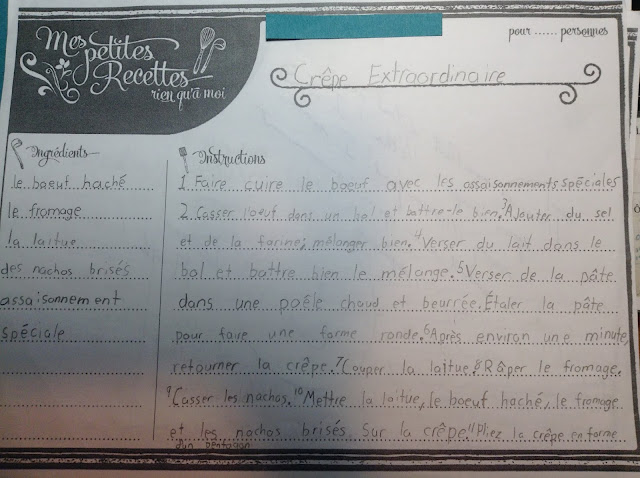 Mes
petites
Recettes
rien qu'à moi
pour ...... personnes
Crêpe Extraordinaire
Ingrédients
le boeuf haché
le fromage
la laitue
des nachos brisés
assaisonnement
spéciale
Instructions
1. Faire cuire le boeuf avec les assaisonnements spéciales
2. Casser l'oeuf dans un bol et battre-le bien. 3 Ajouter du sel
et de la farine; mélanger bien. 4 Verser du lait dans le
bol et battre bien le mélange. 5 Verser de la pâte
dans une poêle chaud et beurrée. Étaler la pâte
pour faire une forme ronde. 6 Après environ une minute,
retourner la crêpe. 7 Couper la laitue. 8 Râper le fromage.
9 Casser les nachos. 10 Mettre la laitue, le boeuf haché, le fromage
et les nachos brisés sur la crêpe. 11 Pliez la crêpe en forme
d'un pentagon